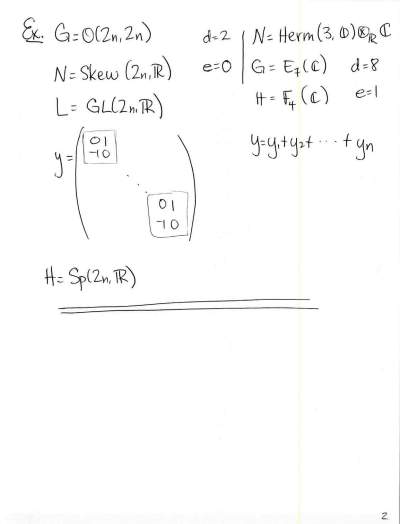 Ex. G=O(2n,2n) d=2
N=Skew(2n,ℝ) e=0
L=GL(2n,ℝ)
y=
0 1
-1 0
⋱
0 1
-1 0
H=Sp(2n,ℝ)
N=Herm(3,𝕆)⊗_ℝ ℂ
G=E₇(ℂ) d=8
H=F₄(ℂ) e=1
y=y₁+y₂+⋯+yₙ
2